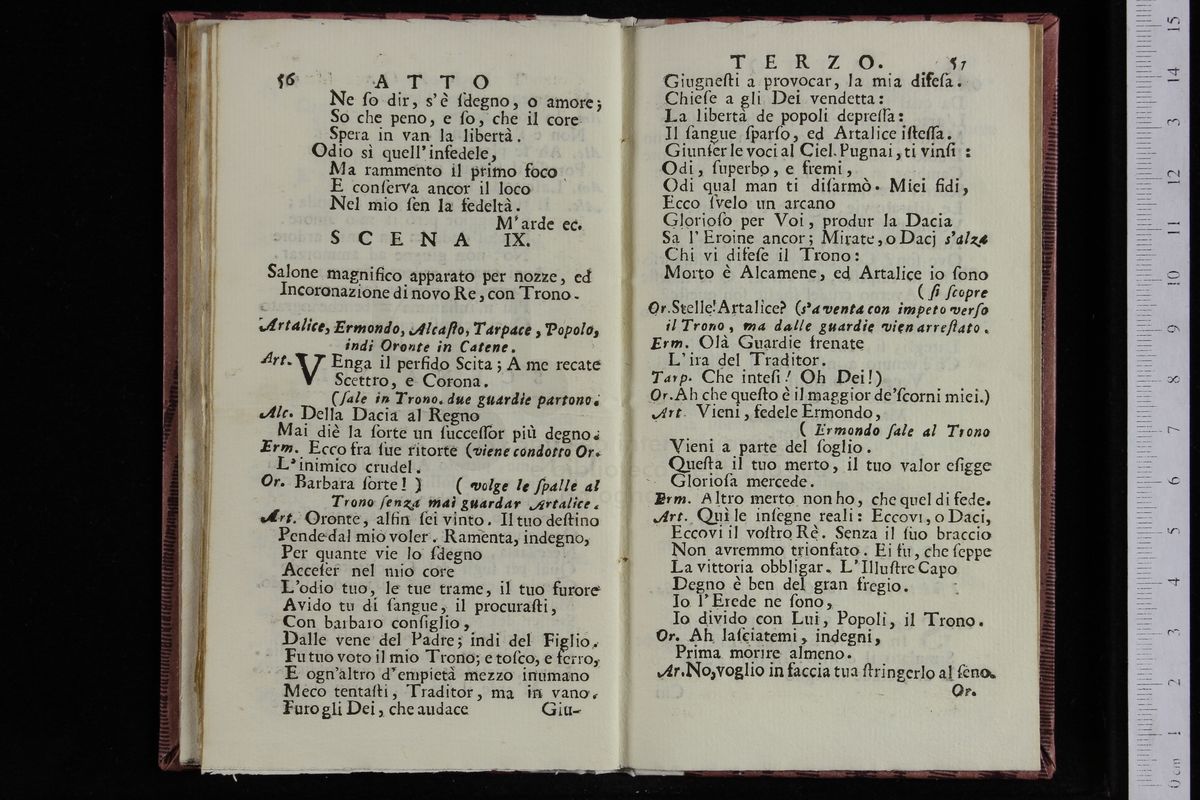 56 ATTO
Ne ſo dir, s'è ſdegno, o amore;
So che peno, e ſo, che il core
Spera in van la libertà.
Odio sì quell'infedele,
Ma rammento il primo foco
E conſerva ancor il loco
Nel mio ſen la fedeltà.
M'arde ec.
SCENA IX.
Salone magnifico apparato per nozze, ed
Incoronazione di novo Re, con Trono.
Artalice, Ermondo, Alcaſto, Tarpace, Popolo,
indi Oronte in Catene.
Art. VEnga il perfido Scita; A me recate
Scettro, e Corona.
(ſale in Trono. due guardie partono.
Alc. Della Dacia al Regno
Mai diè la ſorte un ſucceſſor più degno.
Erm. Ecco fra ſue ritorte (viene condotto Or.
L'inimico crudel.
Or. Barbara ſorte! ) ( volge le ſpalle al
Trono ſenza mai guardar Artalice.
Art. Oronte, alfin ſei vinto. Il tuo deſtino
Pende dal mio voler. Ramenta, indegno,
Per quante vie lo ſdegno
Acceſer nel mio core
L'odio tuo, le tue trame, il tuo furore
Avido tu di ſangue, il procuraſti,
Con barbaro conſiglio,
Dalle vene del Padre; indi del Figlio.
Fu tuo voto il mio Trono; e toſco, e ferro,
E ogn'altro d'empietà mezzo inumano
Meco tentaſti, Traditor, ma in vano.
Furo gli Dei, che audace Giu-
TERZO. 57
Giugneſti a provocar, la mia difeſa.
Chieſe a gli Dei vendetta:
La libertà de popoli depreſſa:
Il ſangue ſparſo, ed Artalice iſteſſa.
Giunſer le voci al Ciel. Pugnai, ti vinſi :
Odi, ſuperbo, e fremi,
Odi qual man ti diſarmò. Miei fidi,
Ecco ſvelo un arcano
Glorioſo per Voi, produr la Dacia
Sa l'Eroine ancor; Mirate, o Dacj s'alza
Chi vi difeſe il Trono:
Morto è Alcamene, ed Artalice io ſono
( ſi ſcopre
Or. Stelle! Artalice? (s'aventa con impeto verſo
il Trono, ma dalle guardie vien arreſtato.
Erm. Olà Guardie frenate
L'ira del Traditor.
Tarp. Che inteſi! Oh Dei!)
Or. Ah che queſto è il maggior de'ſcorni miei.)
Art. Vieni, fedele Ermondo,
( Ermondo ſale al Trono
Vieni a parte del ſoglio.
Queſta il tuo merto, il tuo valor eſigge
Glorioſa mercede.
Erm. Altro merto non ho, che quel di fede.
Art. Quì le inſegne reali: Eccovi, o Daci,
Eccovi il voſtro Rè. Senza il ſuo braccio
Non avremmo trionfato. Ei fu, che ſeppe
La vittoria obbligar. L'Illuſtre Capo
Degno è ben del gran fregio.
Io l'Erede ne ſono,
Io divido con Lui, Popoli, il Trono.
Or. Ah laſciatemi, indegni,
Prima morire almeno.
Ar. No, voglio in faccia tua ſtringerlo al ſeno.
Or.
0 cm 1 2 3 4 5 6 7 8 9 10 11 12 3 14 15